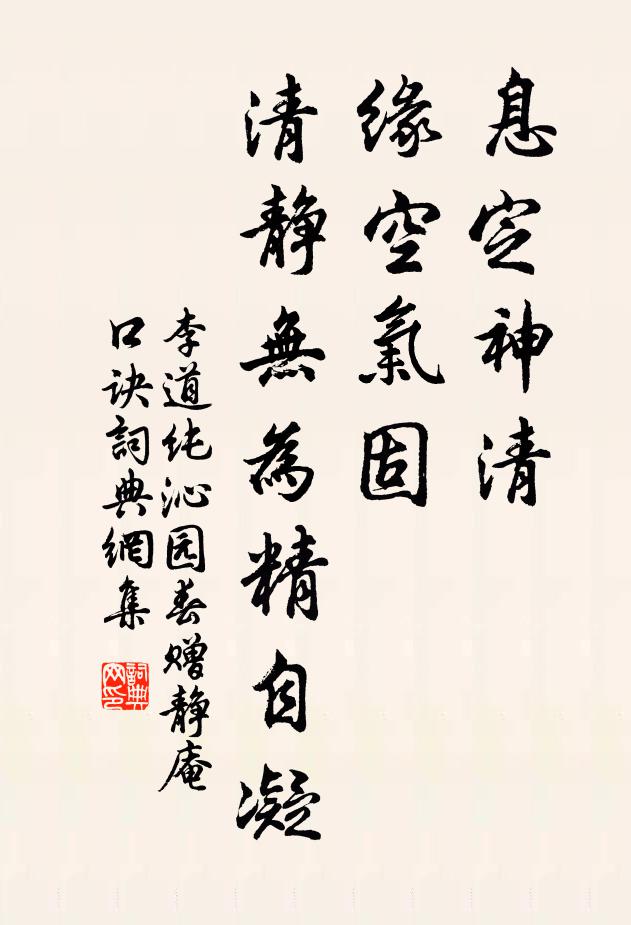 息定神清
緣空氣固
清靜無為精自凝
李道纯沁园春赠静庵
口诀詞典網集
詞典网印